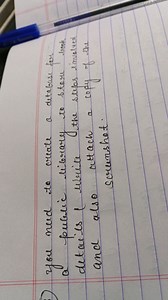 you need to create a database for
a public library to store book
details. Write the steps involved
and also attach a copy of the
screenshot.